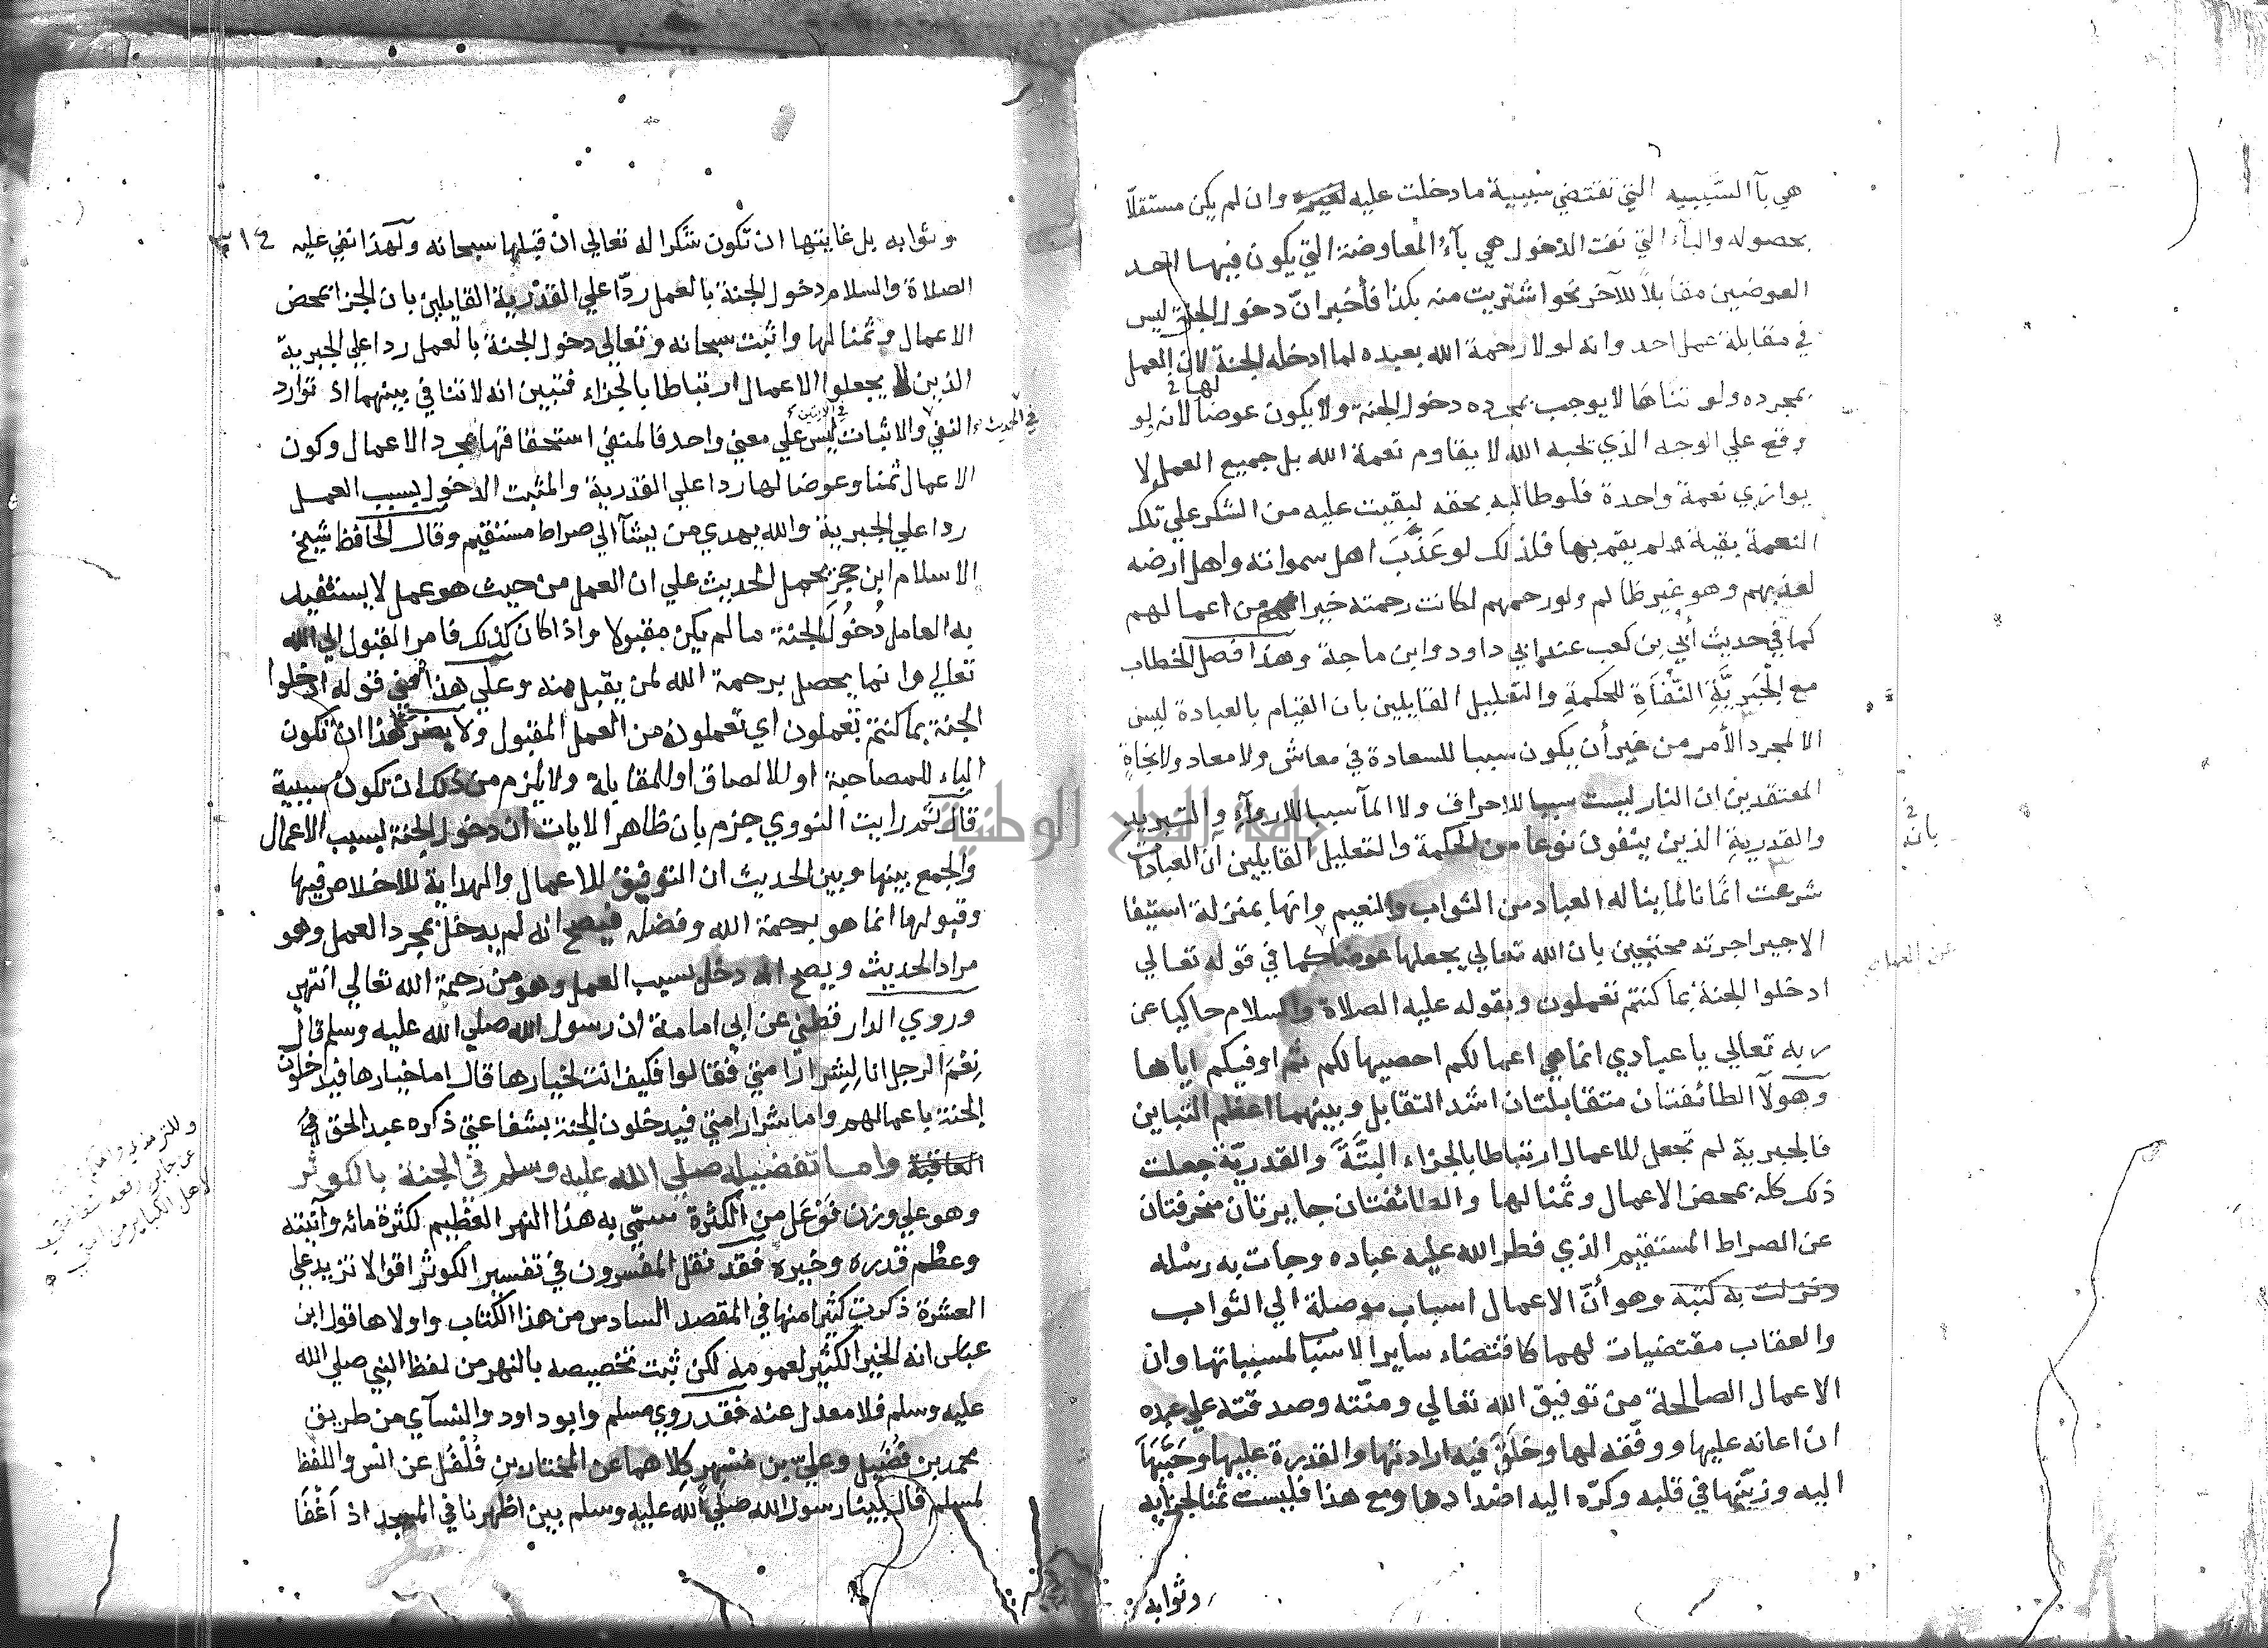 هي بآ السَّببيه التي تقتضي سببية ما دخلت عليه لغيره وان لم يكن مستقلاّ
بحصوله والبآء التي نفت الدخول هي بآءُ المعاوضة التي يكون فيها احد
العوضين مقابلاً للآخر نحو اشتريت منه بكذا فأخبر انّ دخول الجنة ليس
في مقابلة عمل احد وانه لولا رحمة الله بعبده لما ادخله الجنة لان العمل
بمجرده ولو تناها لا يوجب بمجرده دخول الجنة ولا يكون عوضا لها لانه لو
وقع علي الوجه الذي يحبه الله لا يقاوم نعمة الله بل جميع العمل لا
يوازي نعمة واحدة فلو طالبه بحقه لبقيت عليه من الشكر علي تلك
النعمة بقية لم يقم بها فلذلك لو عَذَّبَ اهل سمواته واهل ارضه
لعذبهم وهو غير ظالم ولو رحمهم لكانت رحمته خيرا من اعمالهم
كما في حديث أبي بن كعب عند ابي داود وابن ماجة وهذا فصل الخطاب
مع الْجَبريَّةِ النُّفَاةِ للحكمةِ والتعليل القايلين بان القيام بالعبادة ليس
الا لمجرد الأمر من غير أن يكون سببا للسعادة في معاش ولا معاد ولا نجاةٍ
المعتقدين ان النار ليست سببا للاحراق ولا المآ سببا للاروآءِ والتبريد
والقدريةِ الذين ينفون نوعا من الحكمة والتعليل القايلين ان العبادات
بانه
شرعت اثمانا لما يناله العباد من الثواب والنعيم وانها بمنزلة استيفا
الاجير اجرته محتجين بان الله تعالي يجعلها عوضا كما في قوله تعالي
عن العمل
ادخلوا الجنة بما كنتم تعملون وبقوله عليه الصلاة والسلام حاكيا عن
ربه تعالي يا عبادي انما هي اعمالكم احصيها لكم ثم اوفيكم اياها
وهولآ الطائفتان متقابلتان اشد التقابل وبينهما اعظم التباين
فالجبرية لم تجعل للاعمال ارتباطا بالجزاء البتَّةَ والقدريّة جعلت
ذلك كله بمحض الاعمال وثمنا لها والطائفتان جايرتان منحرفتان
عن الصراط المستقيم الذي فطر الله عليه عباده وجآت به رسْله
ونزلت به كتبه وهو أنّ الاعمال اسباب موصلة الي الثواب
والعقاب مقتضيات لهما كاقتضاء ساير الاسباب لمسبباتها وان
الاعمال الصالحة من توفيق الله تعالي ومنّته وصدقته علي عبده
ان اعانه عليها ووفقه لها وخلَقَ فيه ارادتها والقدرة عليها وحَبَّبَهَا
اليه وزيّنها في قلبه وكرّه اليه اضدادها ومع هذا فليست ثمنا لجزايه
وثوابه
وثوابه بل غايتها ان تكون شكرا له تعالي انْ قبلها سبحانه ولهذا نفي عليه
الصلاة والسلام دخول الجنة بالعمل ردّا علي القدْرية القايلين بان الجزا بمحض
الاعمال وثمنا لها واثبت سبحانه وتعالي دخول الجنة بالعمل ردا علي الجبرية
الذين لم يجعلوا الاعمال ارتباطا بالجزاء فتبين انه لا تنافي بينهما اذ توارد
في الحديث
النفي والاثبات ليس علي معني واحد فالمنفي استحقاقها بمجرد الاعمال وكون
الاعمال ثمنا وعوضا لها ردا علي القدرية والمثبت الدخول بسبب العمل
ردا علي الجبرية والله يهدي من يشآ الي صراط مستقيم وقال الحافظ شيخ
الاسلام ابن حجر يحمل الحديث علي ان العمل من حيث هو عمل لا يستفيد
به العامل دُخُولَ الجنة ما لم يكن مقبولا واذا كان كذلك فامر القبول الي الله
تعالي وانما يحصل برحمة الله لمن يقبل منه وعلي هذا فمعني قوله ادخلوا
الجنة بما كنتم تعملون اي تعملونه من العمل المقبول ولا يضر هذا ان تكون
الباء للمصاحبة او للالصاق او للمقابلة ولا يلزم من ذلك ان تكون سببية
قال ثم رايت النووي جزم بان ظاهر الايات ان دخول الجنة بسبب الاعمال
والجمع بينها وبين الحديث ان التوفيق للاعمال والهداية للاخلاص فيها
وقبولها انما هو برحمة الله وفضله فيصح انه لم يدخل بمجرد العمل وهو
مراد الحديث ويصح انه دخل بسبب العمل وهو من رحمة الله تعالي انتهي
وروي الدارقطني عن ابي امامة ان رسول الله صلي الله عليه وسلم قال
نِعْمَ الرجل انا لِشِرار امتي فقالوا فكيف انت لخيارها قال اما خيارها فيدخلون
الجنة باعمالهم واما شرار امتي فيدخلون الجنة بشفاعتي ذكره عبد الحق في
العاقبة واما تفضيله صلي الله عليه وسلم في الجنة بالكوثر
وللترمذي
عن جابر رفعه شفاعتي
لاهل الكباير من امتي
وهو علي وزن فَوْعَل من الكثرة سمّي به هذا النهر العظيم لكثرة مائه وآنيته
وعظْم قدره وخيره فقد نقل المفسرون في تفسير الكوثر اقوالا تزيد علي
العشرة ذكرت كثيرا منها في المقصد السادس من هذا الكتاب واولاها قول ابن
عباس انه الخير الكثير لعمومه لكن ثبت تخصيصه بالنهر من لفظ النبي صلي الله
عليه وسلم فلا معدل عنه فقد روي مسلم وابو داود والنسآي من طريق
محمد بن فُضَيل وعليّ بن مُسْهِر كلاهما عن المختار بن فُلْفُل عن انس واللفظ
لمسلم قال بينا رسول الله صلي الله عليه وسلم بين اظهرنا في المسجد اذ اَغْفَا